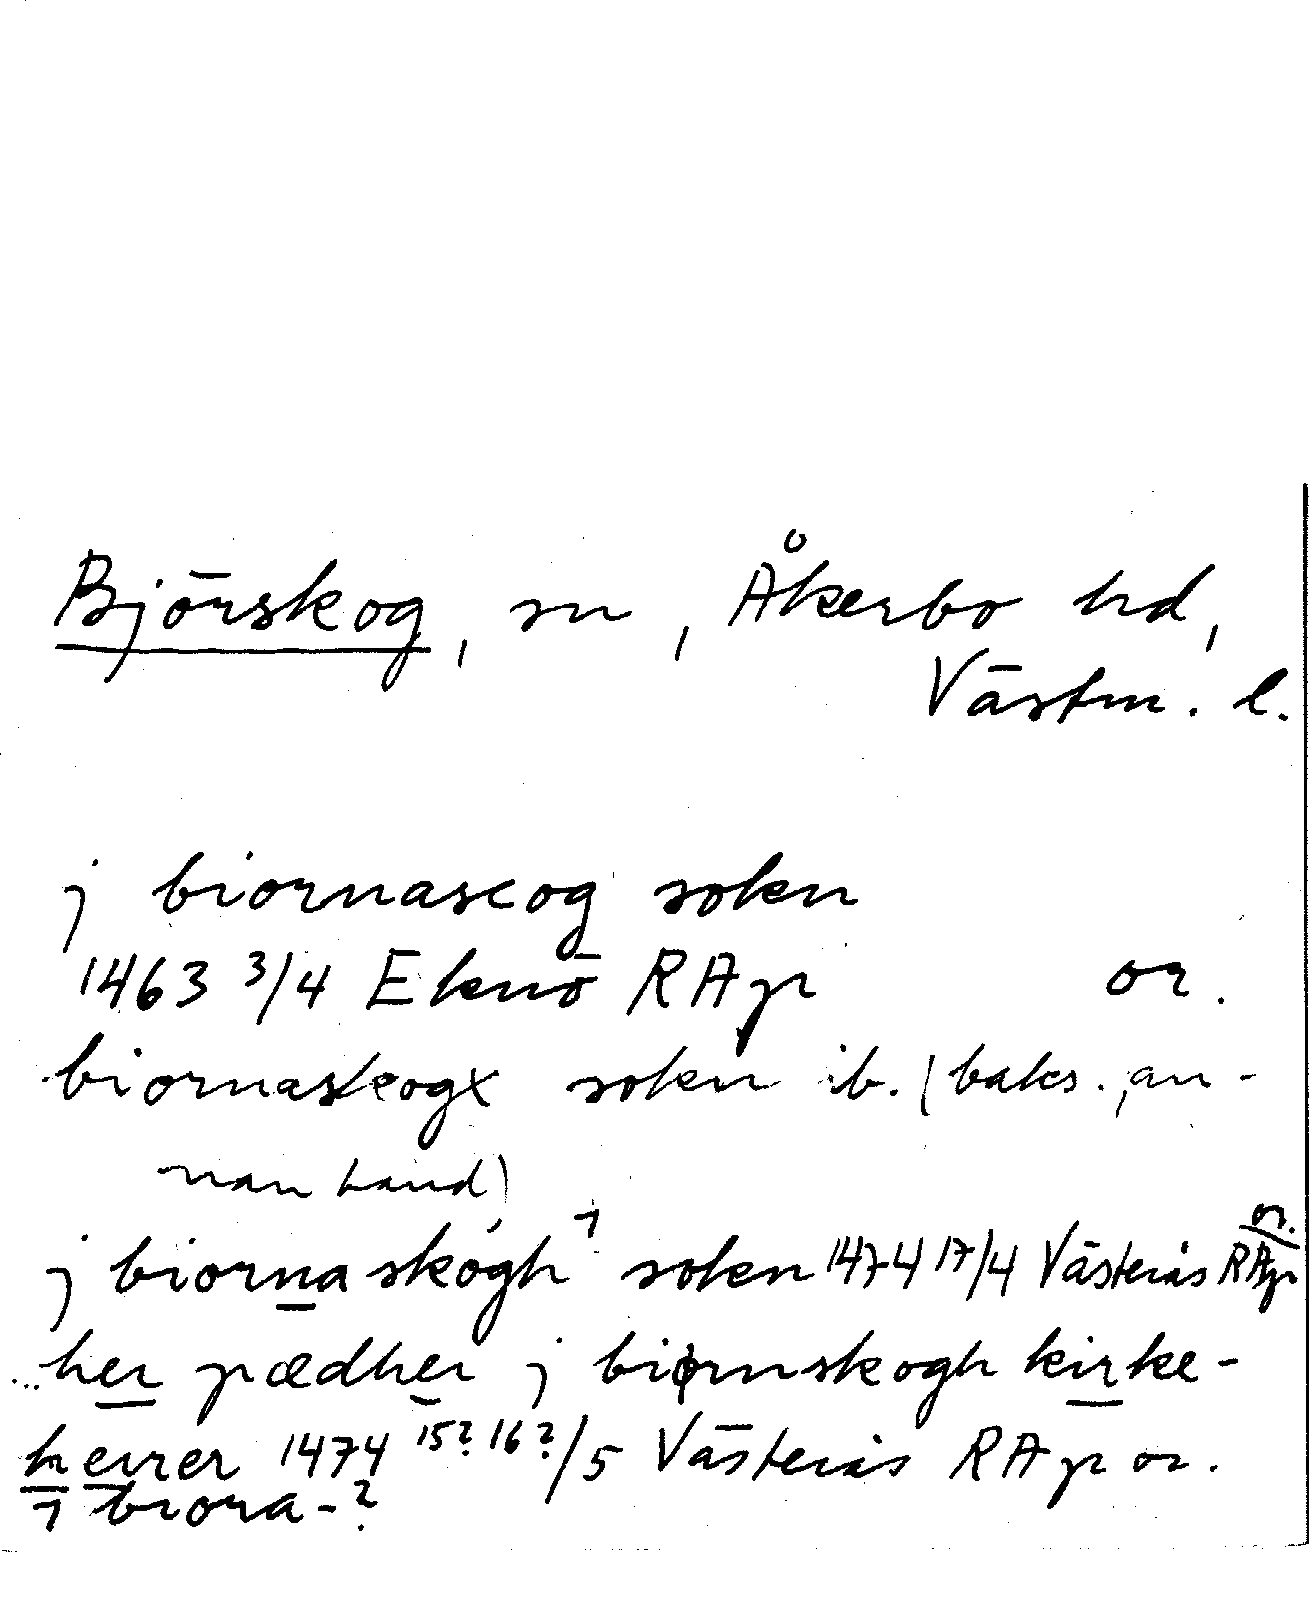 Björskog, sn, Åkerbo hd,
Västm. l.
j biornascog sokn
1463 3/4 Eknö RAp or.
biornaskogx sokn ib. (baks., an-
nan hand)
j biornaskogh ¹ sokn 1474 17/4 Västerås RAp or.
...her pædher j biørnskogh kirke-
herrer 1474 15? 16?/5 Västerås RAp or.
1 biora-?